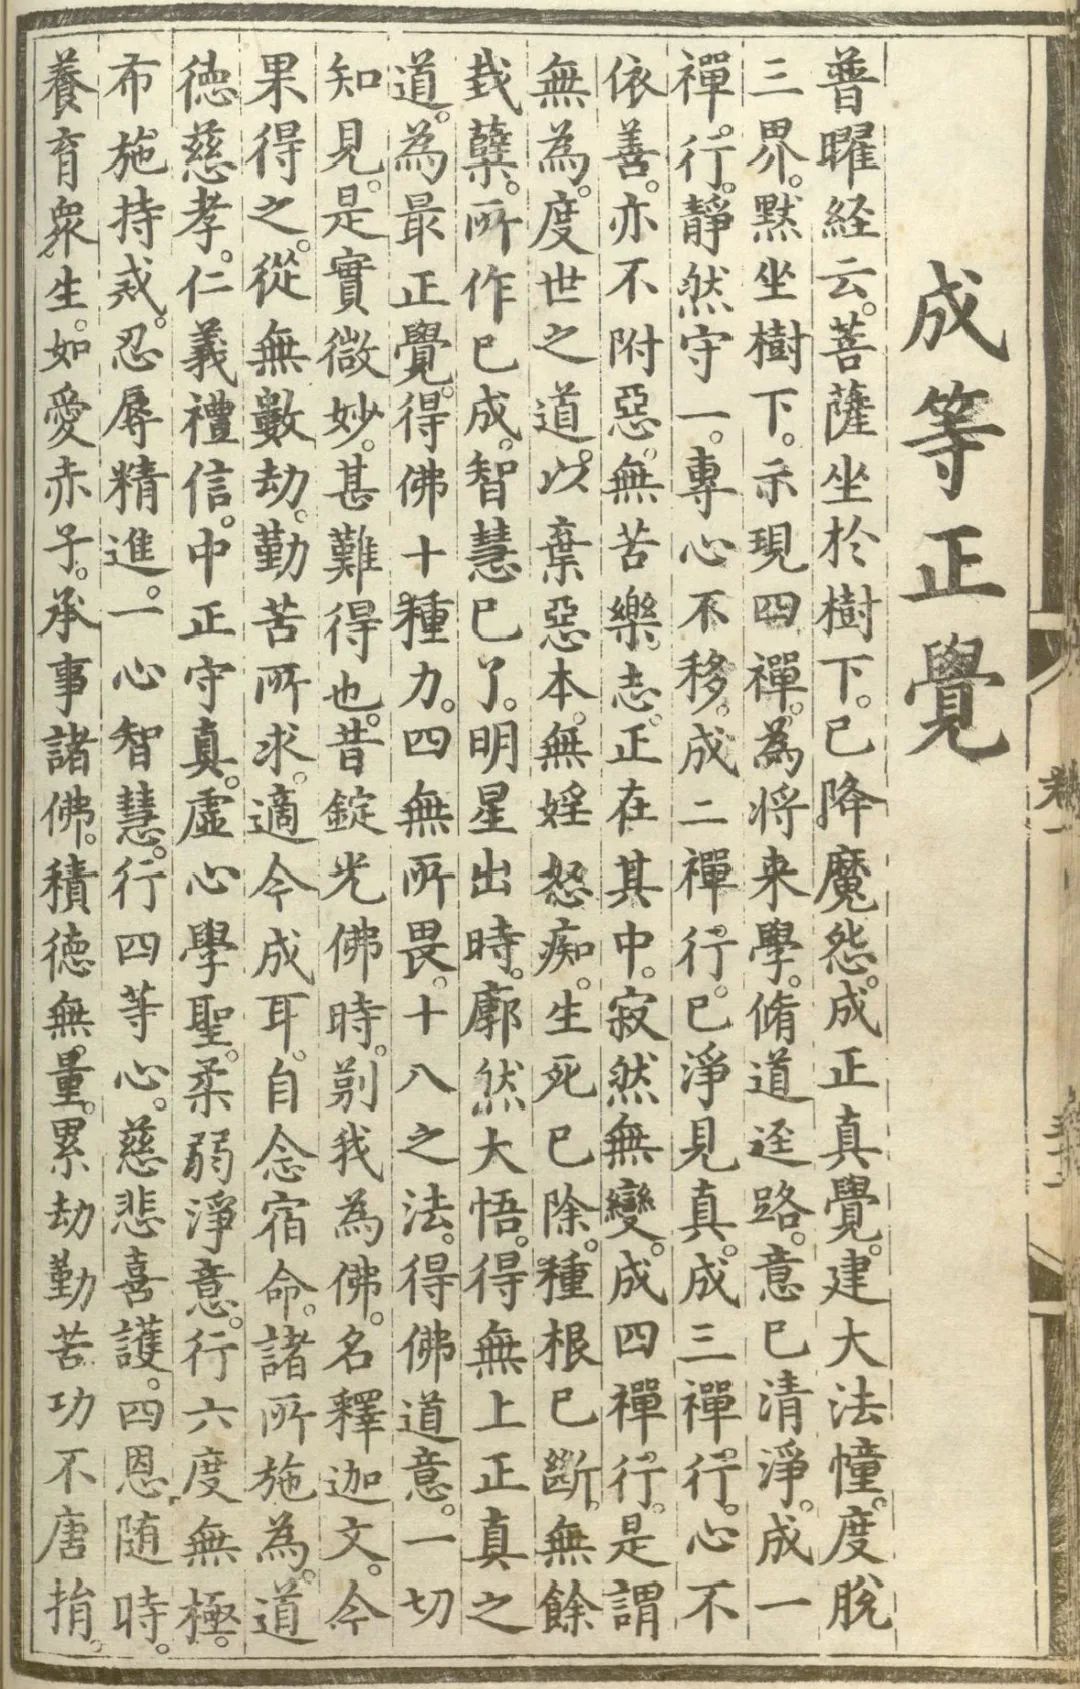 成等正覺
普曜経云。菩薩坐於樹下。已降魔怨。成正真覺。建大法幢。度脫
三界。黙坐樹下。示現四禪。為將来學。脩道迳路。意已清淨。成一
禪行。靜然守一。專心不移。成二禪行。已淨見真。成三禪行。心不
依善。亦不附惡。無苦樂志。正在其中。寂然無變。成四禪行。是謂
無為。度世之道。以棄惡本。無婬怒痴。生死已除。種根已斷。無餘
栽蘖。所作已成。智慧已了。明星出時。廓然大悟。得無上正真之
道。為最正覺。得佛十種力。四無所畏。十八之法。得佛道意。一切
知見。是實微妙。甚難得也。昔錠光佛時。莂我為佛。名釋迦文。今
果得之。從無數劫。勤苦所求。適今成耳。自念宿命。諸所施為。道
徳慈孝。仁義禮信。中正守真。虛心學聖。柔弱淨意。行六度無極。
布施持戒。忍辱精進。一心智慧。行四等心。慈悲喜護。四恩随時。
養育衆生。如愛赤子。承事諸佛。積徳無量。累劫勤苦功不唐捐。
卷一